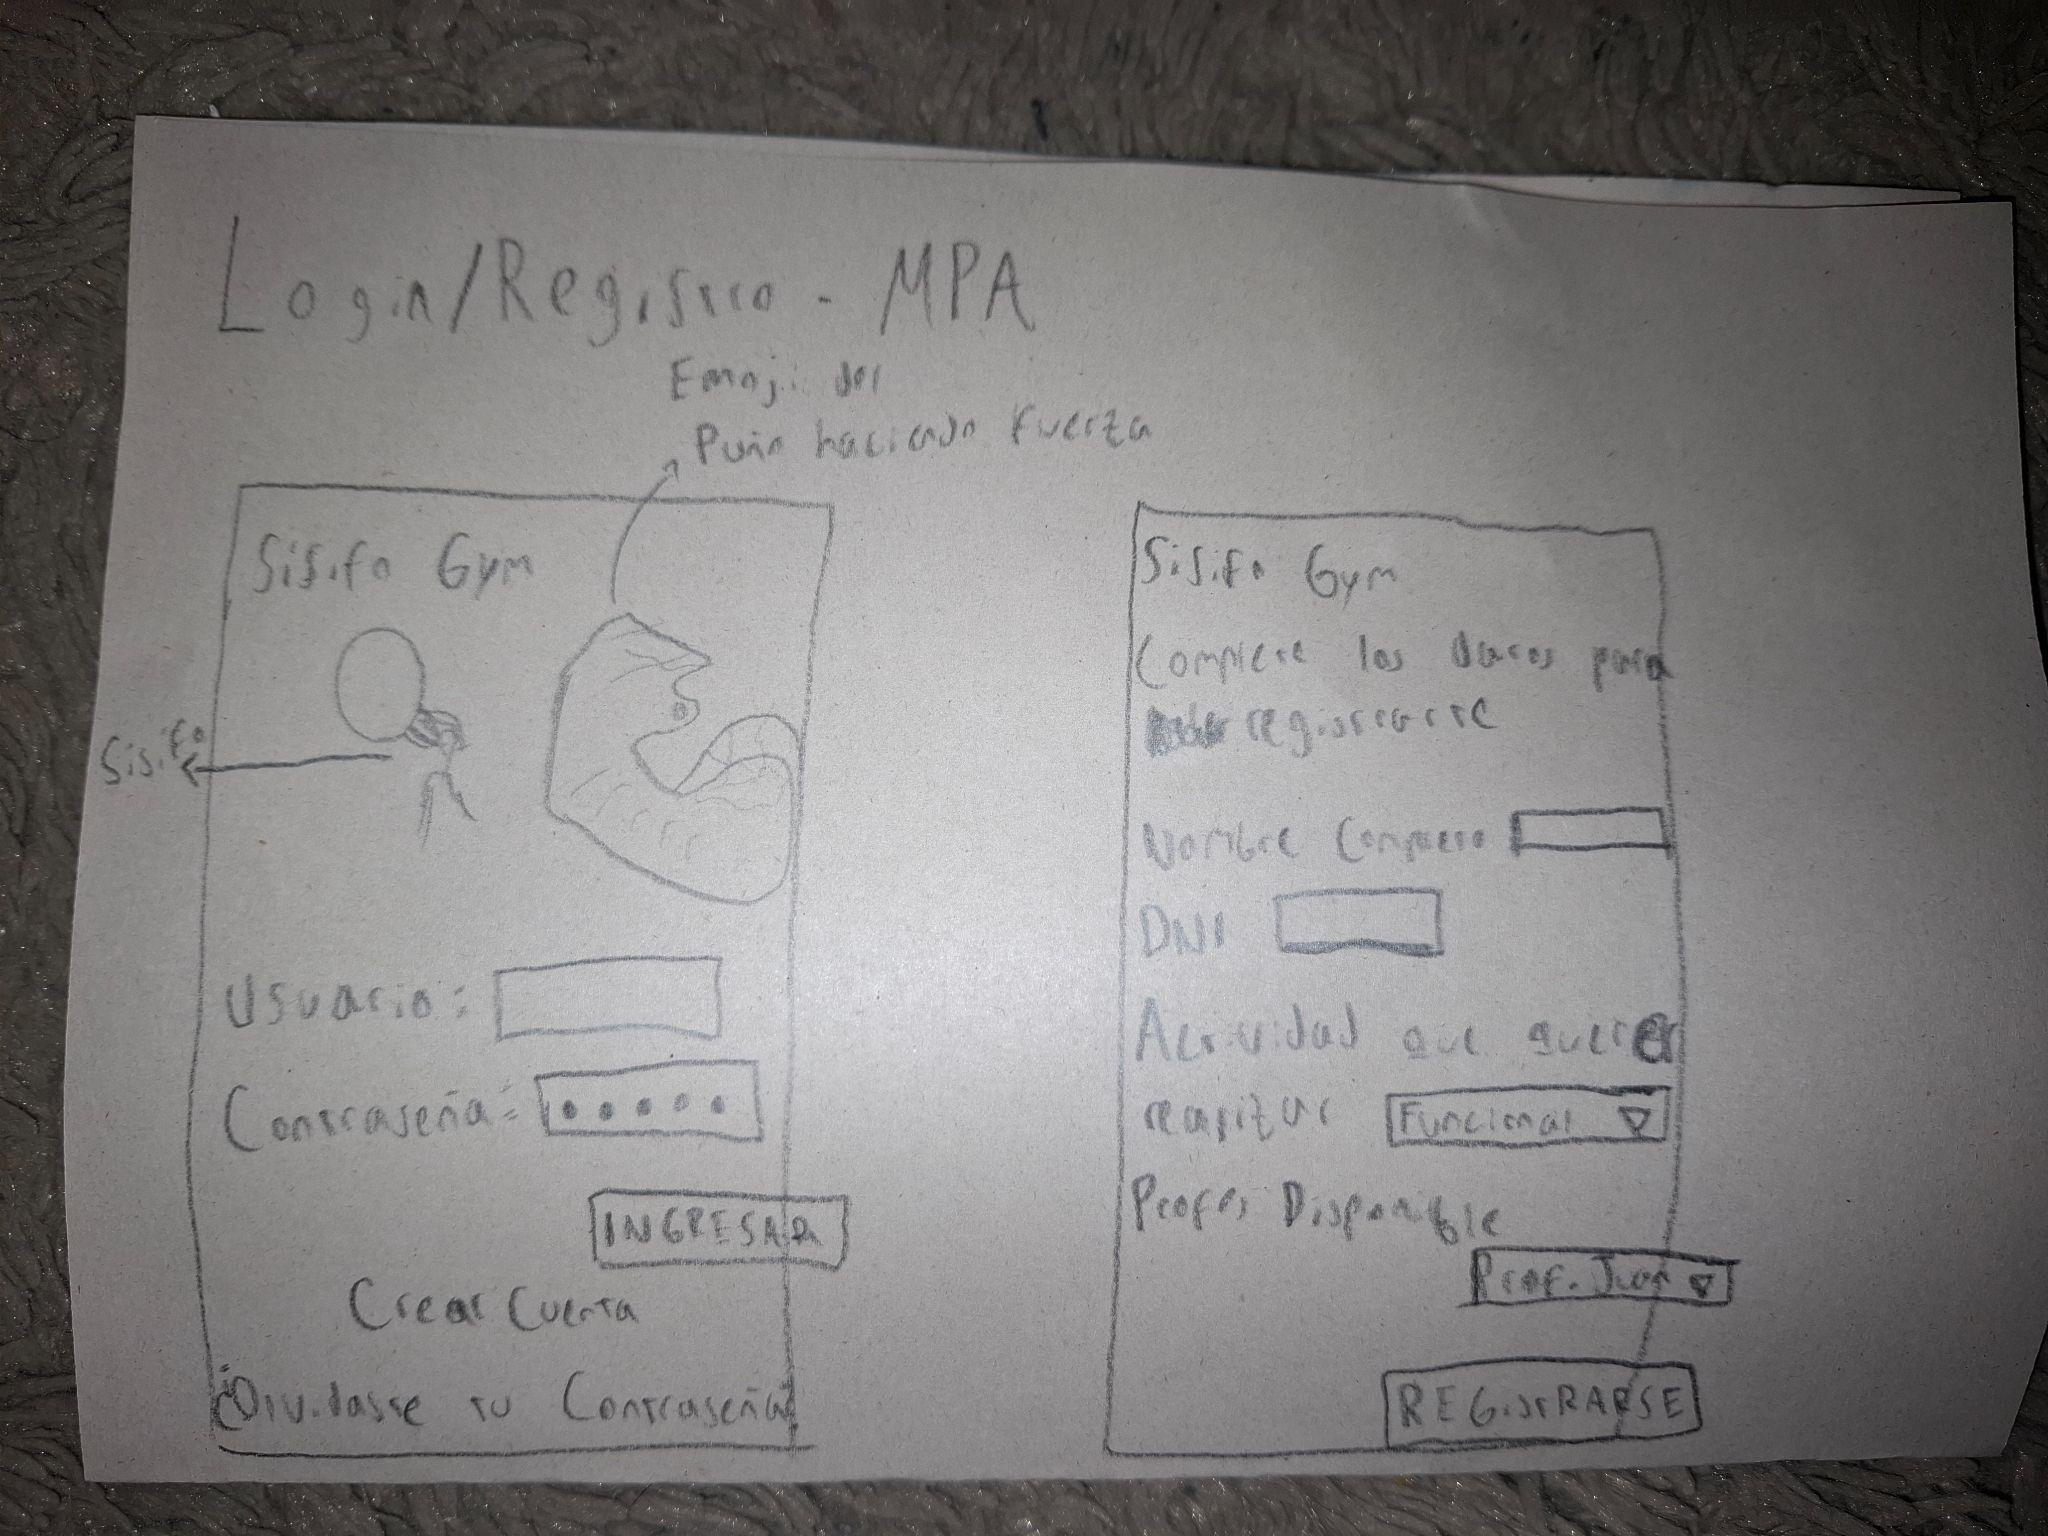 Login/Registro - MPA
Emoji del
Puño haciendo fuerza
Sisifo Gym
Sisifo
Usuario:
Contraseña:
INGRESAR
Crear Cuenta
¿Olvidaste tu Contraseña?
Sisifo Gym
Complete los datos para
registrarte
Nombre Completo
DNI
Actividad que querer
realizar Funcional
Profes Disponible
Prof. Juan
REGistRARSE